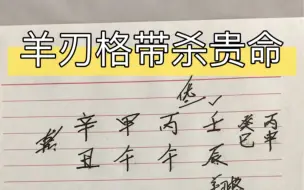 羊刃格带杀贵命
辛 甲 丙 壬 癸 丙
丑 午 午 辰 巳 申